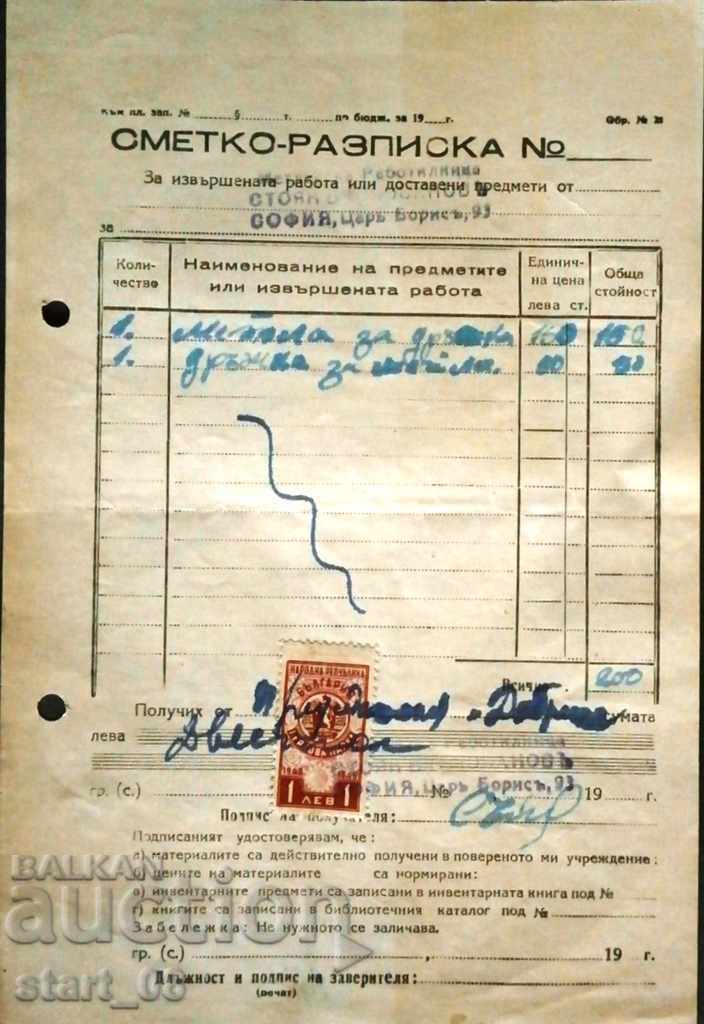 Към пл. зап. № 6 г. по бюдж. за 19 г. Обр. № 28
СМЕТКО-РАЗПИСКА №
За извършената работа или доставени предмети от
Работилница
СТОЯНЪ
СОФИЯ, Царь Борисъ, 93
за
Коли-чество Наименование на предметите или извършената работа Единич-на цена лева ст. Обща стойност
1. метла за дръжка 150 150
1. дръжка за метла. 50 50
Всичко 200
НАРОДНА РЕПУБЛИКА
БЪЛГАРИЯ
1 ЛЕВ 1
Получих от сумата
лева Двеста
СОФИЯ, Царь Борисъ, 93
гр. (с.) № 19 г.
Подпис на получателя:
Подписаният удостоверявам, че :
а) материалите са действително получени в повереното ми учреждение ;
б) цените на материалите са нормирани:
в) инвентарните предмети са записани в инвентарната книга под №
г) книгите са записани в библиотечния каталог под №
Забележка: Не нужното се заличава.
гр. (с.) , 19 г.
Длъжност и подпис на заверителя:
(печат)
BALKAN
auction
start_08